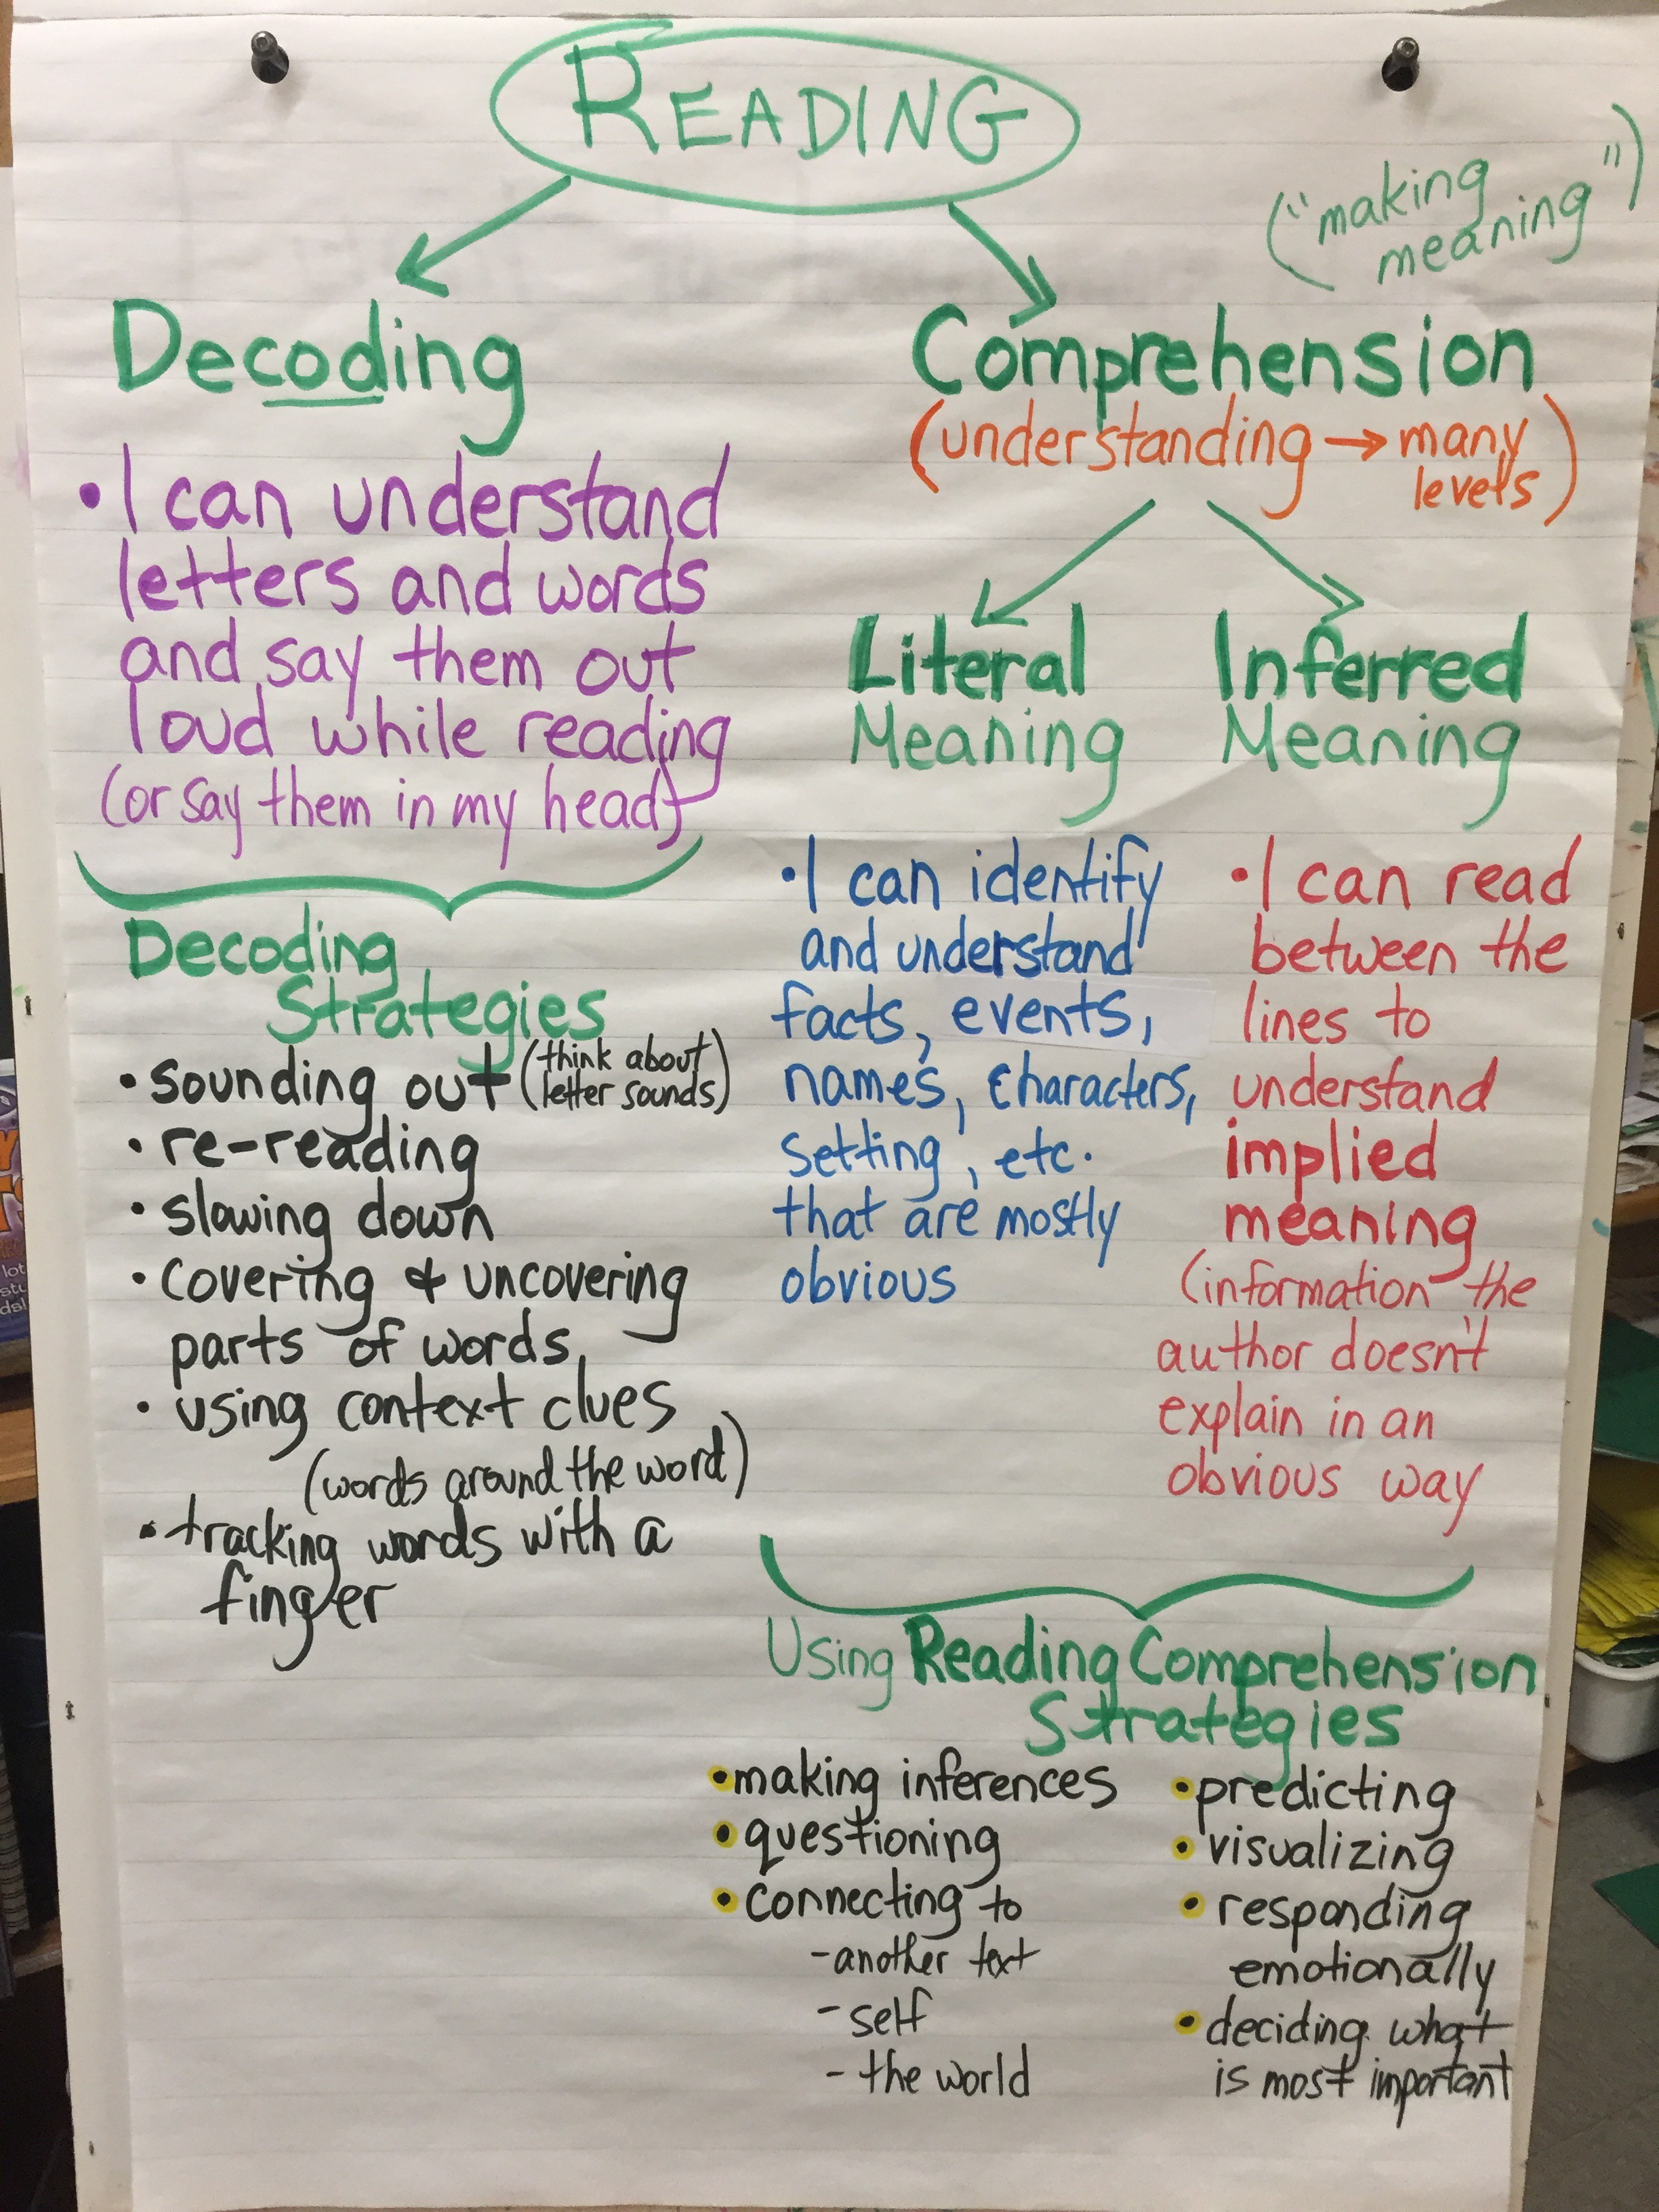 READING
("making
meaning")
Decoding
• I can understand
letters and words
and say them out
loud while reading
(or say them in my head)
Decoding
Strategies
• sounding out (think about
letter sounds)
• re-reading
• slowing down
• covering & uncovering
parts of words
• using context clues
(words around the word)
• tracking words with a
finger
Comprehension
(understanding → many
levels)
Literal
Meaning
• I can identify
and understand
facts, events,
names, characters,
setting, etc.
that are mostly
obvious
Inferred
Meaning
• I can read
between the
lines to
understand
implied
meaning
(information the
author doesn't
explain in an
obvious way
Using Reading Comprehension
Strategies
• making inferences
• questioning
• connecting to
- another text
- self
- the world
• predicting
• visualizing
• responding
emotionally
• deciding what
is most important